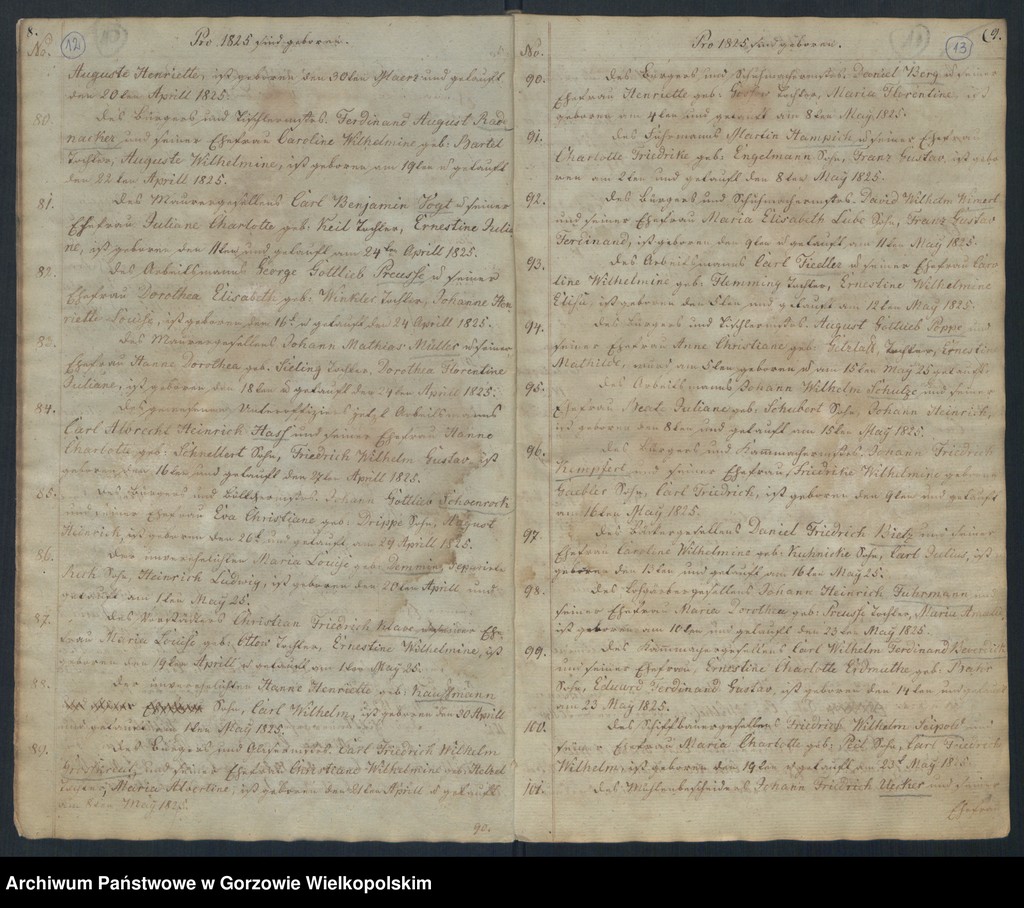 8.
No.
12
Pro 1825 sind geboren.
Auguste Henriette, ist geboren den 30ten Maerz und getauft
den 20ten Aprill 1825.
80. Des Bürgers und Tischlermstrs. Ferdinand August Rade
macker und seiner Ehefrau Caroline Wilhelmine geb: Bartel
Tochter, Auguste Wilhelmine, ist geboren am 19ten u getauft
den 22ten Aprill 1825.
81. Des Maurergesellens Carl Benjamin Vogt u seiner
Ehefrau Juliane Charlotte geb: Keil Tochter, Ernestine Julia
ne, ist geboren den 11ten und getauft am 24ten Aprill 1825.
82. Des Arbeitsmanns George Gottlieb Preusse u seiner
Ehefrau Dorothea Elisabeth geb: Winkler Tochter, Johanne Hen
riette Louise, ist geboren den 16t. u getauft den 24 Aprill 1825.
83. Des Maurergesellens Johann Mathias Müller u seiner
Ehefrau Hanne Dorothea geb: Sieling Tochter, Dorothea Florentine
Juliane, ist geboren den 18ten u getauft den 24ten Aprill 1825.
84. Des gewesenen Unteroffiziers jetzt Arbeitsmanns
Carl Albrecht Heinrich Hass und seiner Ehefrau Hanne
Charlotte geb: Schnellert Sohn, Friedrich Wilhelm Gustav, ist
geboren den 16ten und getauft den 27ten Aprill 1825.
85. Des Bürgers und Böttchermstrs. Johann Gottlieb Schoenrock
und seiner Ehefrau Eva Christiane geb: Drippe Sohn, August
Heinrich, ist geboren den 26t. und getauft am 29 Aprill 1825.
86. Der unverehelichten Maria Louise geb: Demming
Sohn, Heinrich Ludwig, ist geboren den 20ten Aprill und
getauft am 1ten May 25.
87. Des Vorstädters Christian Friedrich Klare und seiner Ehe-
frau Maria Louise geb: Ottow Tochter, Ernestine Wilhelmine, ist
geboren den 19ten Aprill u getauft am 1ten May 25.
88. Der unverehelichten Hanne Henriette geb: Kauffmann
Sohn, Carl Wilhelm, ist geboren den 20 Aprill
und getauft am 1ten May 1825.
89. Des Bürgers und Carl Friedrich Wilhelm
und seiner Ehefrau Christiane Wilhelmine geb: Hetzel
Tochter, Maria Albertine, ist geboren den 21ten Aprill u getauft
am 8ten May 1825.
90.
9.
No.
13
Pro 1825 sind geboren.
90. Des Bürgers und Schuhmachermstrs. Daniel Berg u seiner
Ehefrau Henriette geb: Tochter, Maria Florentine, ist
geboren am 4ten und getauft am 8ten May 1825.
91. Des Fuhrmanns Martin Hampich u seiner Ehefrau
Charlotte Friedrike geb: Engelmann Sohn, Franz Gustav, ist gebo
ren am 2ten und getauft den 8ten May 1825.
92. Des Bürgers und Schuhmachermstrs. David Wilhelm Winert
und seiner Ehefrau Maria Elisabeth Liebe Sohn, Franz Gustav
Ferdinand, ist geboren den 9ten u getauft am 11ten May 1825.
93. Des Arbeitsmanns Carl Fiedler u seiner Ehefrau Caro
line Wilhelmine geb: Flemming Tochter, Ernestine Wilhelmine
Elise, ist geboren den 5ten und getauft am 12ten May 1825.
94. Des Bürgers und Tischlermstrs. August Gottlieb Poppe und
seiner Ehefrau Anne Christiane geb: Gitzlaff, Tochter, Ernestine
Mathilde, am 5ten geboren u am 15ten May 25 getauft.
95. Des Arbeitsmanns Johann Wilhelm Schulze und seiner
Ehefrau Beate Juliane geb: Schubert Sohn, Johann Heinrich,
ist geboren den 8ten und getauft am 15ten May 1825.
96. Des Bürgers und Kammachermstrs. Johann Friedrich
Kempfert und seiner Ehefrau, Friedrike Wilhelmine geborene
Gaebler Sohn, Carl Friedrich, ist geboren den 9ten und getauft
am 16ten May 1825.
97. Des Bäckergesellens Daniel Friedrich Bietz und seiner
Ehefrau Caroline Wilhelmine geb: Kuchnicke Sohn, Carl Julius, ist
geboren den 13ten und getauft am 16ten May 25.
98. Des Lohgärbergesellens Johann Heinrich Fuhrmann und
seiner Ehefrau Maria Dorothea geb: Preusse Tochter, Maria Amalie
ist geboren am 10ten und getauft den 23ten May 1825.
99. Des Kammachergesellens Carl Wilhelm Ferdinand
und seiner Ehefrau, Ernestine Charlotte Erdmuthe geb:
Sohn, Eduard Ferdinand Gustav, ist geboren den 14ten und getauft
am 23 May 1825.
100. Des Schiffbauergesellens Friedrich Wilhelm Seipold und
seiner Ehefrau Maria Charlotte geb: Peil Sohn, Carl Friedrich
Wilhelm, ist geboren den 19ten u getauft am 23t. May 1825.
101. Des Mühlenbescheiders Johann Friedrich Uecker und seiner
Ehefrau
Archiwum Państwowe w Gorzowie Wielkopolskim